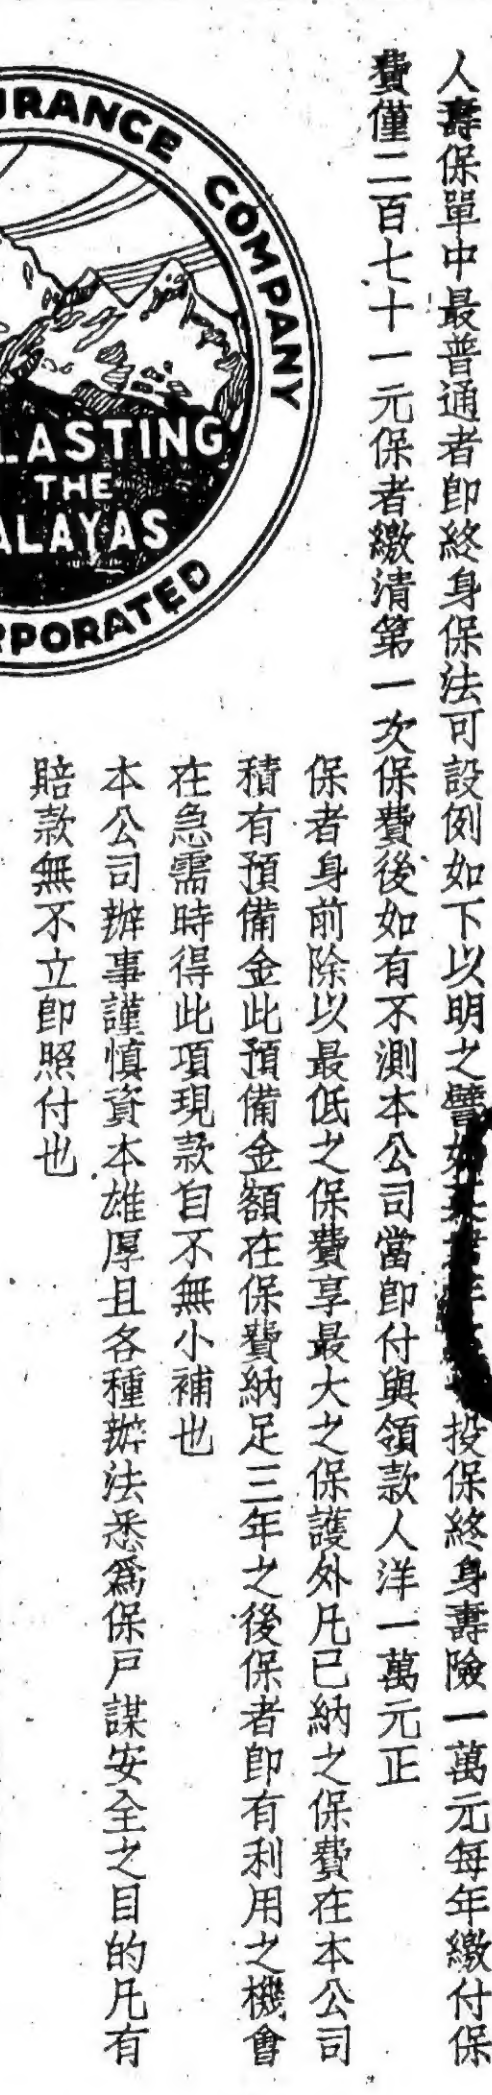 人壽保單中最普通者即終身保法可設例如下以明之譬如投保終身壽險一萬元每年繳付保
費僅二百七十一元保者繳清第一次保費後如有不測本公司當即付與領款人洋一萬元正
保者身前除以最低之保費享最大之保護外凡已納之保費在本公司
積有預備金此預備金額在保費納足三年之後保者即有利用之機會
在急需時得此項現款自不無小補也
本公司辦事謹慎資本雄厚且各種辦法悉爲保戶謀安全之目的凡有
賠款無不立即照付也
URANCE COMPANY
LASTING
THE
ALAYAS
RPORATED